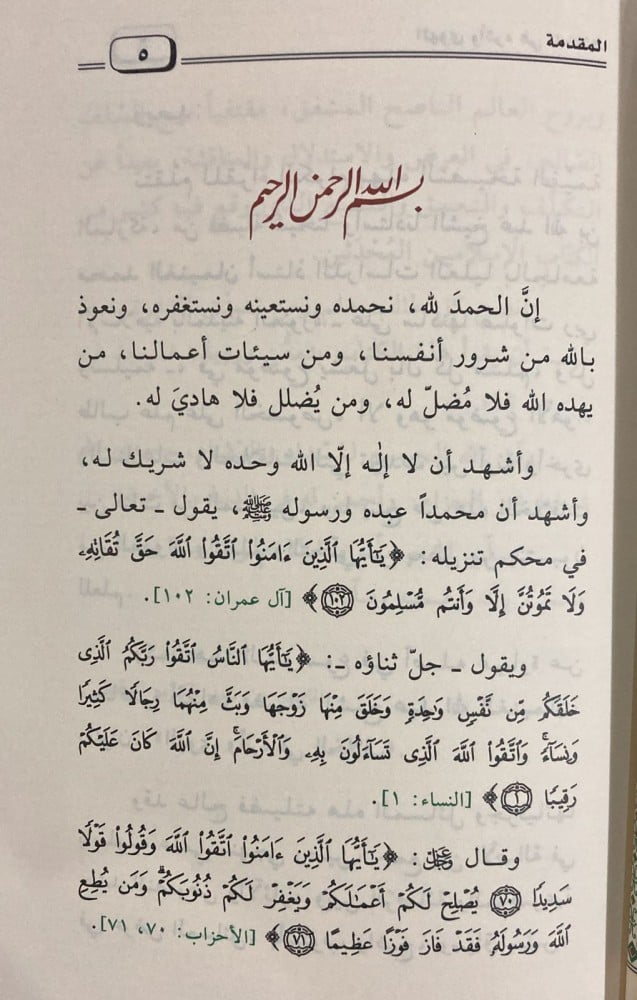 المقدمة
٥
بسم الله الرحمن الرحيم
إنَّ الحمدَ لله، نحمده ونستعينه ونستغفره، ونعوذ
بالله من شرور أنفسنا، ومن سيئات أعمالنا، من
يهده الله فلا مُضلّ له، ومن يُضلل فلا هاديَ له.
وأشهد أن لا إلٰه إلّا الله وحده لا شريك له،
وأشهد أن محمداً عبده ورسوله ﷺ، يقول ـ تعالى ـ
في محكم تنزيله: ﴿يَٰٓأَيُّهَا ٱلَّذِينَ ءَامَنُوا۟ ٱتَّقُوا۟ ٱللَّهَ حَقَّ تُقَاتِهِۦ
وَلَا تَمُوتُنَّ إِلَّا وَأَنتُم مُّسْلِمُونَ ١٠٢﴾ [آل عمران: ١٠٢].
ويقول ـ جلّ ثناؤه ـ: ﴿يَٰٓأَيُّهَا ٱلنَّاسُ ٱتَّقُوا۟ رَبَّكُمُ ٱلَّذِى
خَلَقَكُم مِّن نَّفْسٍ وَٰحِدَةٍ وَخَلَقَ مِنْهَا زَوْجَهَا وَبَثَّ مِنْهُمَا رِجَالًا كَثِيرًا
وَنِسَآءً ۚ وَٱتَّقُوا۟ ٱللَّهَ ٱلَّذِى تَسَآءَلُونَ بِهِۦ وَٱلْأَرْحَامَ ۚ إِنَّ ٱللَّهَ كَانَ عَلَيْكُمْ
رَقِيبًا ١﴾ [النساء: ١].
وقال ﷻ: ﴿يَٰٓأَيُّهَا ٱلَّذِينَ ءَامَنُوا۟ ٱتَّقُوا۟ ٱللَّهَ وَقُولُوا۟ قَوْلًا
سَدِيدًا ٧٠ يُصْلِحْ لَكُمْ أَعْمَٰلَكُمْ وَيَغْفِرْ لَكُمْ ذُنُوبَكُمْ ۗ وَمَن يُطِعِ
ٱللَّهَ وَرَسُولَهُۥ فَقَدْ فَازَ فَوْزًا عَظِيمًا ٧١﴾ [الأحزاب: ٧٠، ٧١].